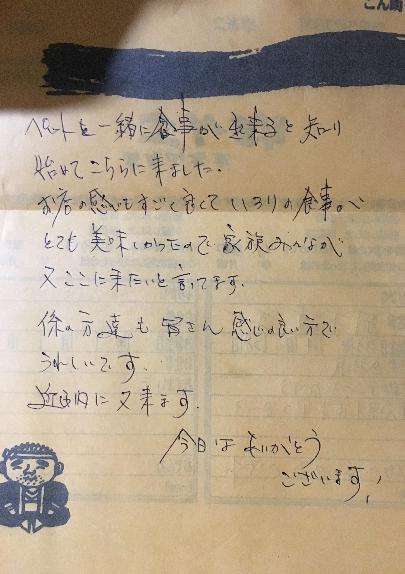 ペットと一緒に食事が出来ると知り
始めてこちらに来ました。
お店の感じもすごく良くていろりの食事が
とても美味しかったので家族みんなが
又ここに来たいと言ってます。
係の方達も皆さん感じの良い方で
うれしいです。
近日内に又来ます。
今日はありがとう
ございます!